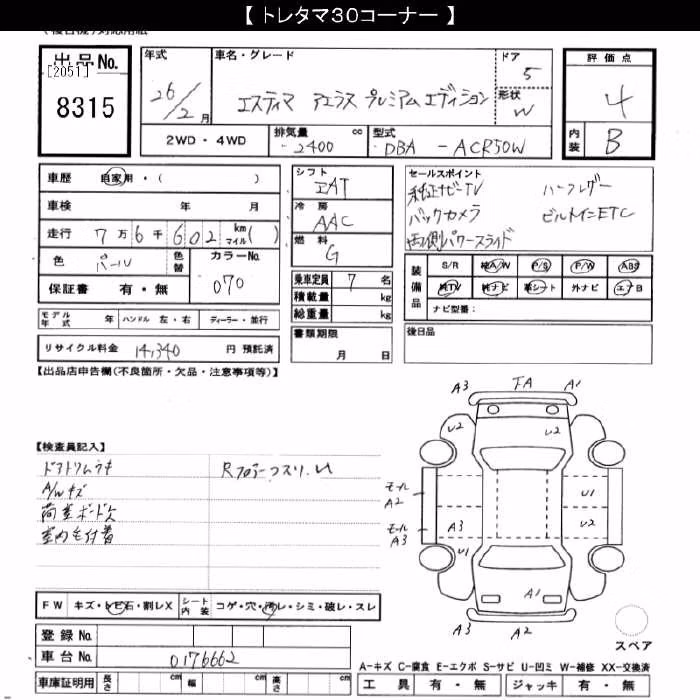 【 トレタマ30コーナー 】
出品No.
[2051]
8315
年式
26/2月
車名・グレード
エスティマ アエラス プレミアムエディション
ドア
5
形状
W
評価点
4
内装
B
2WD・4WD
排気量 cc
2400
型式
DBA - ACR50W
車歴 自家用・( )
車検 年 月
走行 7万6千602 km マイル( )
色 パール
色替
カラーNo.
070
保証書 有・無
シフト
IAT
冷房
AAC
燃料
G
乗車定員 7 名
積載量 kg
総重量 kg
セールスポイント
純正ナビTV ハーフレザー
バックカメラ ビルトインETC
両側パワースライド
装備品
S/R 純A/W P/S P/W ABS
純TV 純ナビ 革シート 外ナビ エアB
ナビ型番:
モデル年式 年 ハンドル 左・右 ディーラー・並行
リサイクル料金 14,340 円 預託済
書類期限
月 日
後日品
【出品店申告欄(不良箇所・欠品・注意事項等)】
【検査員記入】
ドアトリムウキ
A/Wキズ
荷室ボード欠
室内毛付着
A3 FA A1
U2 U2
モール A2
U1
モール A3
A3
U2
U1
A1
A3 A2 A3
スペア
FW キズ・トビ石・割レX
シート内装 コゲ・穴・汚レ・シミ・破レ・スレ
登録No.
車台No. 0176662
車庫証明用 長さ cm 幅 cm 高さ cm
A-キズ C-腐食 E-エクボ S-サビ U-凹ミ W-補修 XX-交換済
工具 有・無 ジャッキ 有・無